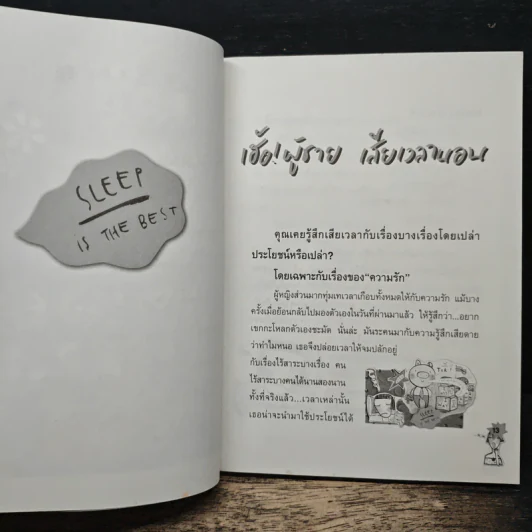 SLEEP
IS THE BEST
เฮ้อ! ผู้ชาย เสียเวลานอน
คุณเคยรู้สึกเสียเวลากับเรื่องบางเรื่องโดยเปล่า
ประโยชน์หรือเปล่า?
โดยเฉพาะกับเรื่องของ“ความรัก”
ผู้หญิงส่วนมากทุ่มเทเวลาเกือบทั้งหมดให้กับความรัก แม้บาง
ครั้งเมื่อย้อนกลับไปมองตัวเองในวันที่ผ่านมาแล้ว ให้รู้สึกว่า...อยาก
เขกกะโหลกตัวเองซะมัด นั่นล่ะ มันระคนมากับความรู้สึกเสียดาย
ว่าทำไมหนอ เธอจึงปล่อยเวลาให้จมปลักอยู่
กับเรื่องไร้สาระบางเรื่อง คน
ไร้สาระบางคนได้นานสองนาน
ทั้งที่จริงแล้ว...เวลาเหล่านั้น
เธอน่าจะนำมาใช้ประโยชน์ได้
13